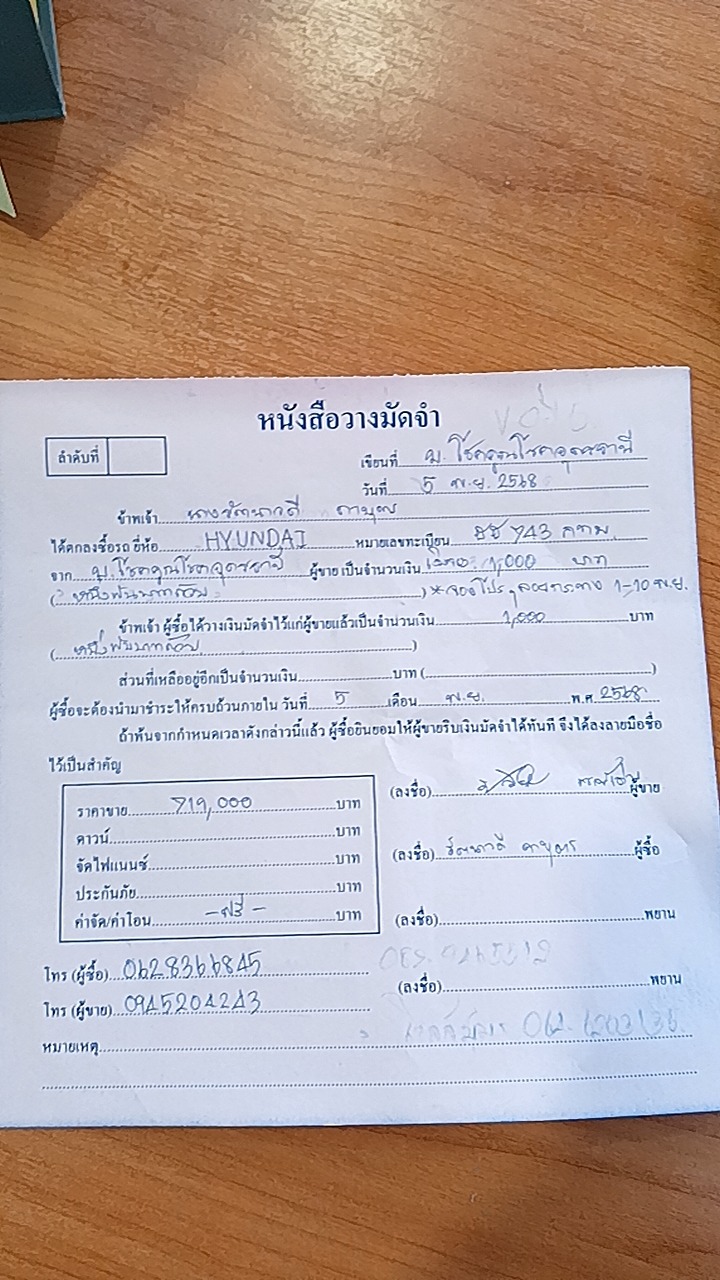 หนังสือวางมัดจำ
ลำดับที่
เขียนที่ บ. โชคคูณโชคอุดรธานี
วันที่ 5 พ.ย. 2568
ข้าพเจ้า นาง
ได้ตกลงซื้อรถ ยี่ห้อ HYUNDAI หมายเลขทะเบียน 743 กทม.
จาก บ. โชคคูณโชคอุดรธานี ผู้ขาย เป็นจำนวนเงิน 1,000 บาท
( หนึ่งพันบาทถ้วน ) * 1-10 พ.ย.
ข้าพเจ้า ผู้ซื้อได้วางเงินมัดจำไว้แก่ผู้ขายแล้วเป็นจำนวนเงิน 1,000 บาท
( หนึ่งพันบาทถ้วน )
ส่วนที่เหลืออยู่อีกเป็นจำนวนเงิน บาท ( )
ผู้ซื้อจะต้องนำมาชำระให้ครบถ้วนภายใน วันที่ 5 เดือน พ.ย. พ.ศ 2568
ถ้าพ้นจากกำหนดเวลาดังกล่าวนี้แล้ว ผู้ซื้อยินยอมให้ผู้ขายริบเงินมัดจำได้ทันที จึงได้ลงลายมือชื่อ
ไว้เป็นสำคัญ
ราคาขาย 719,000 บาท
ดาวน์ บาท
จัดไฟแนนซ์ บาท
ประกันภัย บาท
ค่าจัด/ค่าโอน -ฟรี- บาท
(ลงชื่อ) ผู้ขาย
(ลงชื่อ) ผู้ซื้อ
(ลงชื่อ) พยาน
(ลงชื่อ) พยาน
โทร (ผู้ซื้อ) 0628366845
โทร (ผู้ขาย) 0945204243
หมายเหตุ